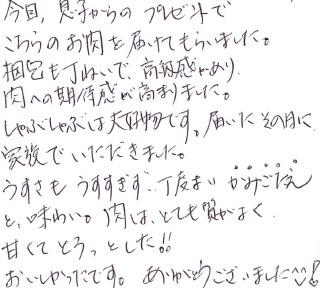 今日、息子からの プレゼントで
こちらの お肉を 届けてもらいました。
梱包も 丁ねいで、高級感があり、
肉への期待感が高まりました。
しゃぶしゃぶは大好物です。届いた その日に
家族で いただきました。
うすさも うすすぎず、丁度よい かみごたえ
と、味わい。肉は、とても 質がよく
甘くて とろっとした!!
おいしかったです。ありがとうございました^^!